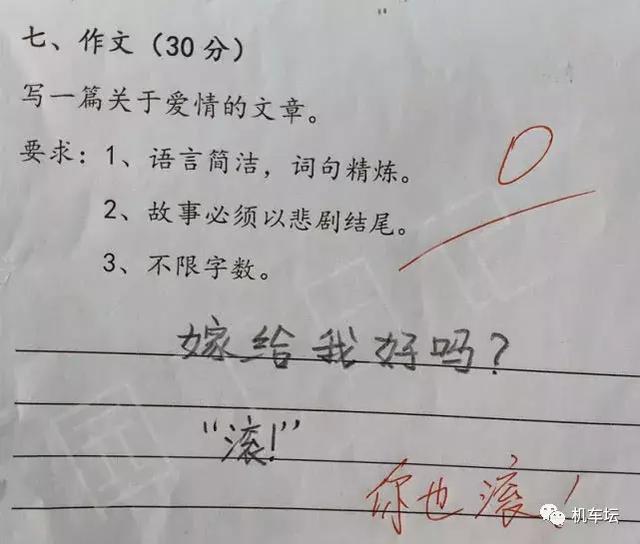 七、作文（30分）
写一篇关于爱情的文章。
0
要求：1、语言简洁，词句精炼。
2、故事必须以悲剧结尾。
3、不限字数。
嫁给我好吗？
“滚！”
你也滚！
机车坛